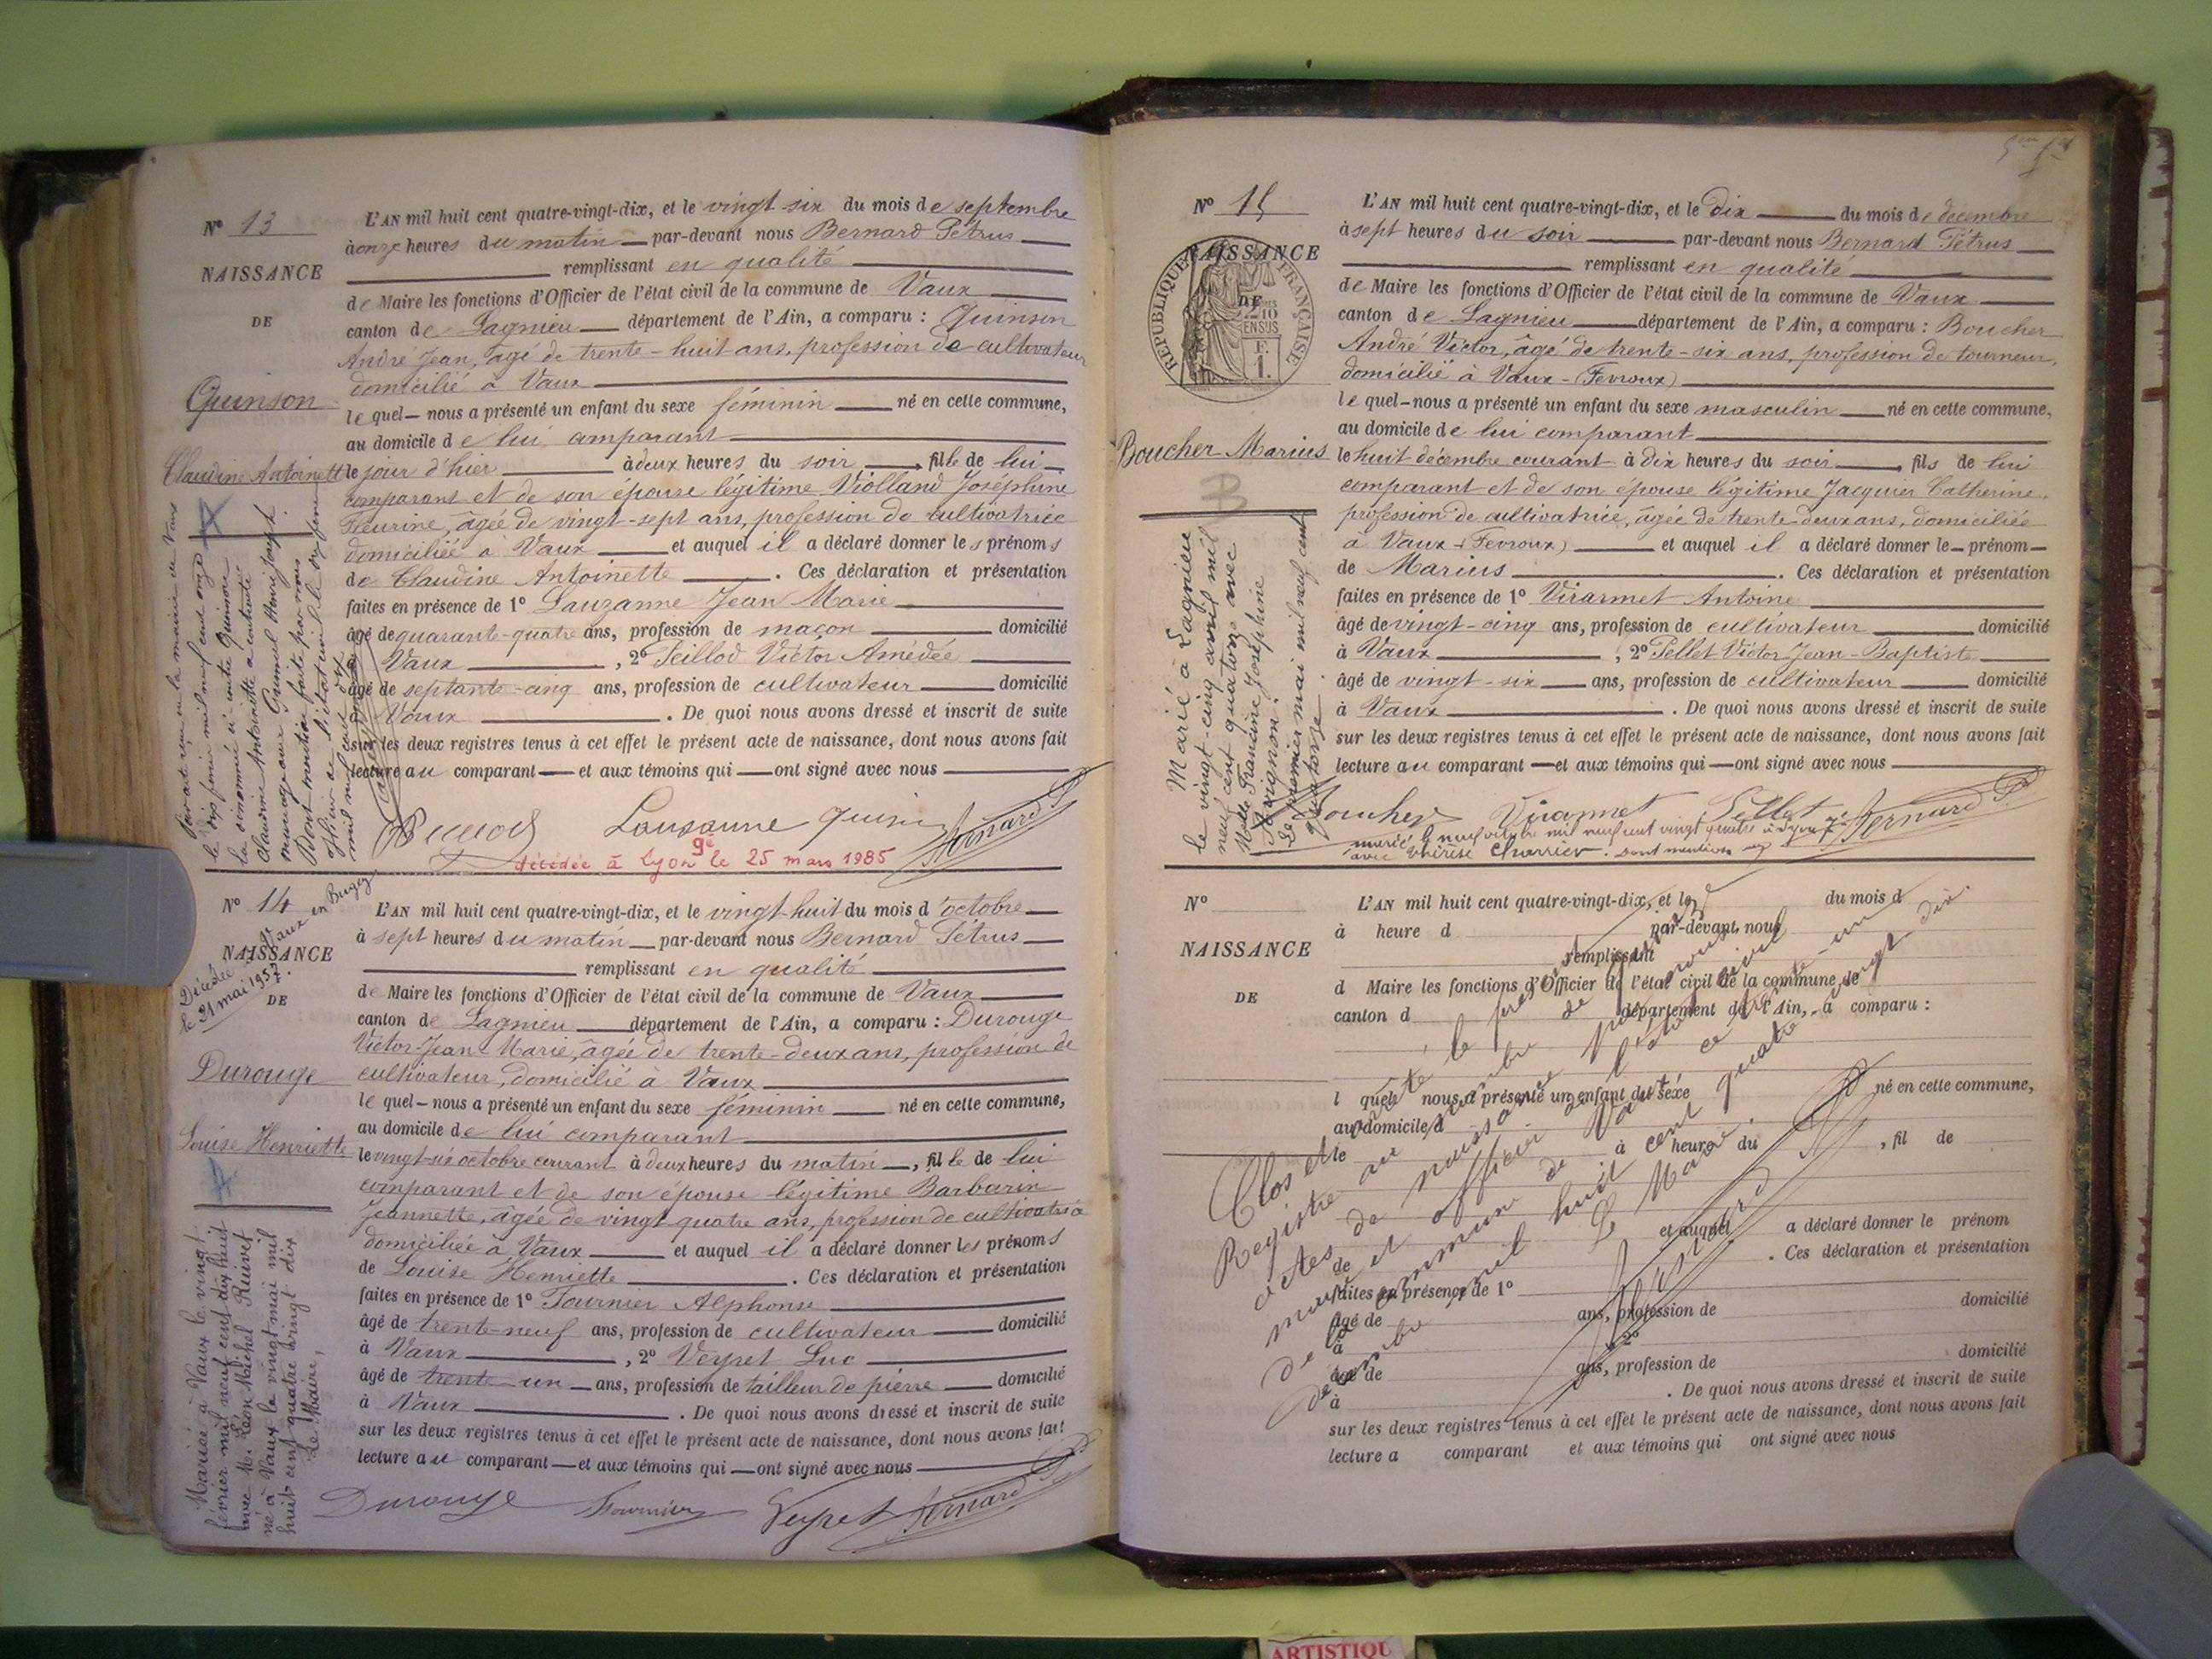 Nº 13
NAISSANCE
DE
Quinson
Claudine Antoinette
L'AN mil huit cent quatre-vingt-dix, et le vingt six du mois de septembre
à onze heures du matin par-devant nous Bernard Pétrus
remplissant en qualité
de Maire les fonctions d'Officier de l'état civil de la commune de Vaux
canton de Lagnieu département de l'Ain, a comparu : Quinson
André Jean, âgé de trente-huit ans, profession de cultivateur
domicilié à Vaux
lequel nous a présenté un enfant du sexe féminin né en cette commune,
au domicile de lui comparant
le jour d'hier à deux heures du soir, fille de lui
comparant et de son épouse légitime Violland Joséphine
Fleurine, âgée de vingt-sept ans, profession de cultivatrice
domiciliée à Vaux et auquel il a déclaré donner les prénoms
de Claudine Antoinette. Ces déclaration et présentation
faites en présence de 1º Lauzanne Jean Marie
âgé de quarante-quatre ans, profession de maçon domicilié
à Vaux, 2º Seillod Victor Amédée
âgé de septante-cinq ans, profession de cultivateur domicilié
à Vaux. De quoi nous avons dressé et inscrit de suite
sur les deux registres tenus à cet effet le présent acte de naissance, dont nous avons fait
lecture au comparant et aux témoins qui ont signé avec nous
Lausanne Quin Bernard P
décédée à Lyon 9e le 25 mars 1985
par acte reçu en la mairie de Vaux
le dix juin mil neuf cent onze
la dénommée ci contre Quinson
Claudine Antoinette a contracté
mariage avec
Dont mention faite par nous
officier de l'état civil le dix juin
mil neuf cent
Nº 14
NAISSANCE
DE
Durouge
Louise Henriette
Décédée à Vaux en Bugey
le 21 mai 1957.
L'AN mil huit cent quatre-vingt-dix, et le vingt-huit du mois d'octobre
à sept heures du matin par-devant nous Bernard Pétrus
remplissant en qualité
de Maire les fonctions d'Officier de l'état civil de la commune de Vaux
canton de Lagnieu département de l'Ain, a comparu : Durouge
Victor-Jean-Marie, âgée de trente-deux ans, profession de
cultivateur, domicilié à Vaux
lequel nous a présenté un enfant du sexe féminin né en cette commune,
au domicile de lui comparant
le vingt-six octobre courant à deux heures du matin, fille de lui
comparant et de son épouse légitime Barbarin
Jeannette, âgée de vingt quatre ans, profession de cultivatrice
domiciliée à Vaux et auquel il a déclaré donner les prénoms
de Louise Henriette. Ces déclaration et présentation
faites en présence de 1º Fournier Alphonse
âgé de trente-neuf ans, profession de cultivateur domicilié
à Vaux, 2º Veyret Luc
âgé de trente-un ans, profession de tailleur de pierre domicilié
à Vaux. De quoi nous avons dressé et inscrit de suite
sur les deux registres tenus à cet effet le présent acte de naissance, dont nous avons fait
lecture au comparant et aux témoins qui ont signé avec nous
Durouge Fournier Veyret Bernard P
Mariée à Vaux le vingt
février mil neuf cent dix huit
avec M. Léon Michel
né à Vaux le vingt mai mil
huit cent quatre vingt dix
Le Maire,
Nº 15
NAISSANCE
DE
RÉPUBLIQUE FRANÇAISE
Boucher Marius
L'AN mil huit cent quatre-vingt-dix, et le dix du mois de décembre
à sept heures du soir par-devant nous Bernard Pétrus
remplissant en qualité
de Maire les fonctions d'Officier de l'état civil de la commune de Vaux
canton de Lagnieu département de l'Ain, a comparu : Boucher
André Victor, âgé de trente-six ans, profession de tourneur,
domicilié à Vaux-(Fevroux)
lequel nous a présenté un enfant du sexe masculin né en cette commune,
au domicile de lui comparant
le huit décembre courant à dix heures du soir, fils de lui
comparant et de son épouse légitime Jacquier Catherine,
profession de cultivatrice, âgée de trente-deux ans, domiciliée
à Vaux-(Fevroux) et auquel il a déclaré donner le prénom
de Marius. Ces déclaration et présentation
faites en présence de 1º Virarmet Antoine
âgé de vingt-cinq ans, profession de cultivateur domicilié
à Vaux, 2º Pellet Victor Jean-Baptiste
âgé de vingt-six ans, profession de cultivateur domicilié
à Vaux. De quoi nous avons dressé et inscrit de suite
sur les deux registres tenus à cet effet le présent acte de naissance, dont nous avons fait
lecture au comparant et aux témoins qui ont signé avec nous
Boucher Pellet Bernard P.
marié le neuf mil neuf cent vingt quatre à Lyon
avec Thérèse Charrier. dont mention
Marié à Lagnieu
le vingt-cinq avril mil
neuf cent quatorze avec
Melle Francine Joséphine
Le premier mai mil neuf cent
quatorze
Nº
NAISSANCE
DE
L'AN mil huit cent quatre-vingt-dix, et le du mois d
à heure d par-devant nous
remplissant
d Maire les fonctions d'Officier de l'état civil de la commune de
canton d département de l'Ain, a comparu :
l quel nous a présenté un enfant du sexe né en cette commune,
au domicile d
le à heure du , fil de
et auquel a déclaré donner le prénom
de . Ces déclaration et présentation
faites en présence de 1º
âgé de ans, profession de domicilié
à , 2º
âgé de ans, profession de domicilié
à . De quoi nous avons dressé et inscrit de suite
sur les deux registres tenus à cet effet le présent acte de naissance, dont nous avons fait
lecture a comparant et aux témoins qui ont signé avec nous
Clos et arrêté le présent
Registre au nombre de quinze
actes de naissance par nous
maire et officier de l'état civil
de la commune de Vaux ce trente-un
décembre mil huit cent quatre vingt dix.
Le Maire.
Bernard P
ARTISTIQU